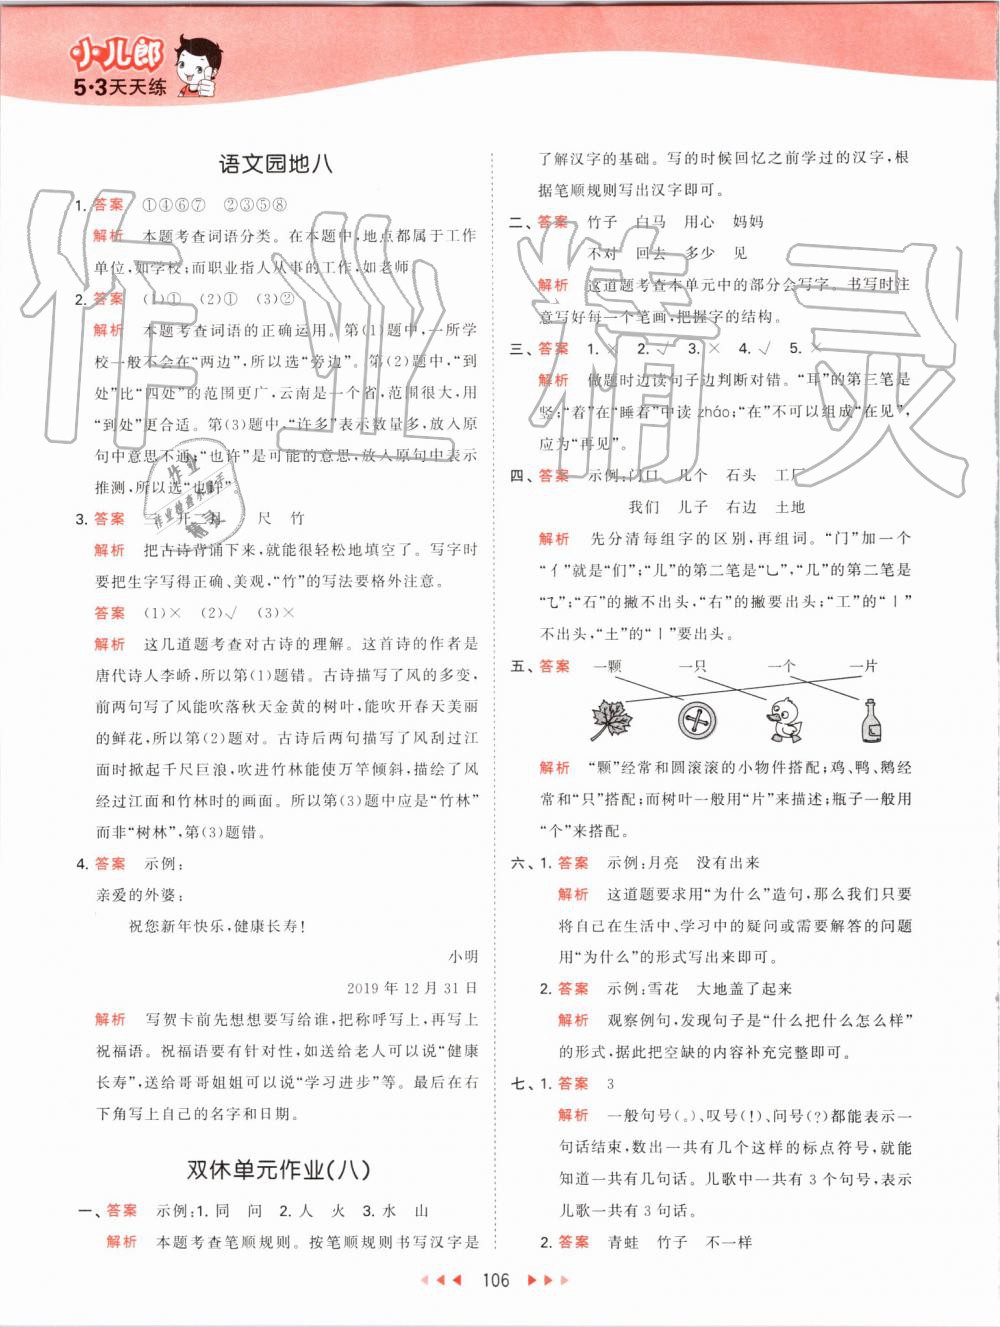 小儿郎
5·3天天练
语文园地八
1. 答案 ①④⑥⑦ ②③⑤⑧
解析 本题考查词语分类。在本题中,地点都属于工作
单位,如学校;而职业指人从事的工作,如老师。
2. 答案 (1)① (2)① (3)②
解析 本题考查词语的正确运用。第(1)题中,一所学
校一般不会在“两边”,所以选“旁边”。第(2)题中,“到
处”比“四处”的范围更广,云南是一个省,范围很大,用
“到处”更合适。第(3)题中,“许多”表示数量多,放入原
句中意思不通;“也许”是可能的意思,放入原句中表示
推测,所以选“也许”。
3. 答案 三 开 二 扎 尺 竹
解析 把古诗背诵下来,就能很轻松地填空了。写字时
要把生字写得正确、美观,“竹”的写法要格外注意。
答案 (1)× (2)√ (3)×
解析 这几道题考查对古诗的理解。这首诗的作者是
唐代诗人李峤,所以第(1)题错。古诗描写了风的多变,
前两句写了风能吹落秋天金黄的树叶,能吹开春天美丽
的鲜花,所以第(2)题对。古诗后两句描写了风刮过江
面时掀起千尺巨浪,吹进竹林能使万竿倾斜,描绘了风
经过江面和竹林时的画面。所以第(3)题中应是“竹林”
而非“树林”,第(3)题错。
4. 答案 示例:
亲爱的外婆:
祝您新年快乐,健康长寿!
小明
2019 年 12 月 31 日
解析 写贺卡前先想想要写给谁,把称呼写上,再写上
祝福语。祝福语要有针对性,如送给老人可以说“健康
长寿”,送给哥哥姐姐可以说“学习进步”等。最后在右
下角写上自己的名字和日期。
双休单元作业(八)
一、答案 示例:1. 同 问 2. 人 火 3. 水 山
解析 本题考查笔顺规则。按笔顺规则书写汉字是
了解汉字的基础。写的时候回忆之前学过的汉字,根
据笔顺规则写出汉字即可。
二、答案 竹子 白马 用心 妈妈
不对 回去 多少 见
解析 这道题考查本单元中的部分会写字。书写时注
意写好每一个笔画,把握字的结构。
三、答案 1. × 2. √ 3. × 4. √ 5. ×
解析 做题时边读句子边判断对错。“耳”的第三笔是
竖;“着”在“睡着”中读 zháo;“在”不可以组成“在见”,
应为“再见”。
四、答案 示例:门口 几个 石头 工厂
我们 儿子 右边 土地
解析 先分清每组字的区别,再组词。“门”加一个
“亻”就是“们”;“儿”的第二笔是“乚”,“几”的第二笔是
“㇈”;“石”的撇不出头,“右”的撇要出头;“工”的“丨”
不出头,“土”的“丨”要出头。
五、答案 一颗 一只 一个 一片
解析 “颗”经常和圆滚滚的小物件搭配;鸡、鸭、鹅经
常和“只”搭配;而树叶一般用“片”来描述;瓶子一般用
“个”来搭配。
六、1. 答案 示例:月亮 没有出来
解析 这道题要求用“为什么”造句,那么我们只要
将自己在生活中、学习中的疑问或需要解答的问题
用“为什么”的形式写出来即可。
2. 答案 示例:雪花 大地盖了起来
解析 观察例句,发现句子是“什么把什么怎么样”
的形式,据此把空缺的内容补充完整即可。
七、1. 答案 3
解析 一般句号(。)、叹号(!)、问号(?)都能表示一
句话结束,数出一共有几个这样的标点符号,就能
知道一共有几句话。儿歌中一共有 3 个句号,表示
儿歌一共有 3 句话。
2. 答案 青蛙 竹子 不一样
106
作业精灵